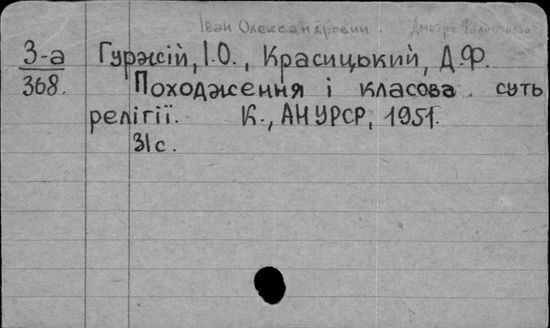 Іван Олександрович. Дмитро Филимонович
3-а Гуржій, І.О., Красицький, Д.Ф.
368. Походження і класова суть
релігії. К., АН УРСР, 1951.
31с.